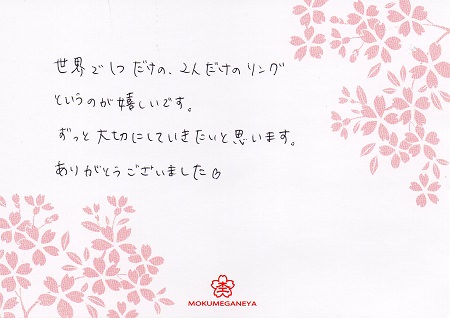 世界で1つだけの、2人だけのリング
というのが嬉しいです。
ずっと大切にしていきたいと思います。
ありがとうございました
MOKUMEGANEYA